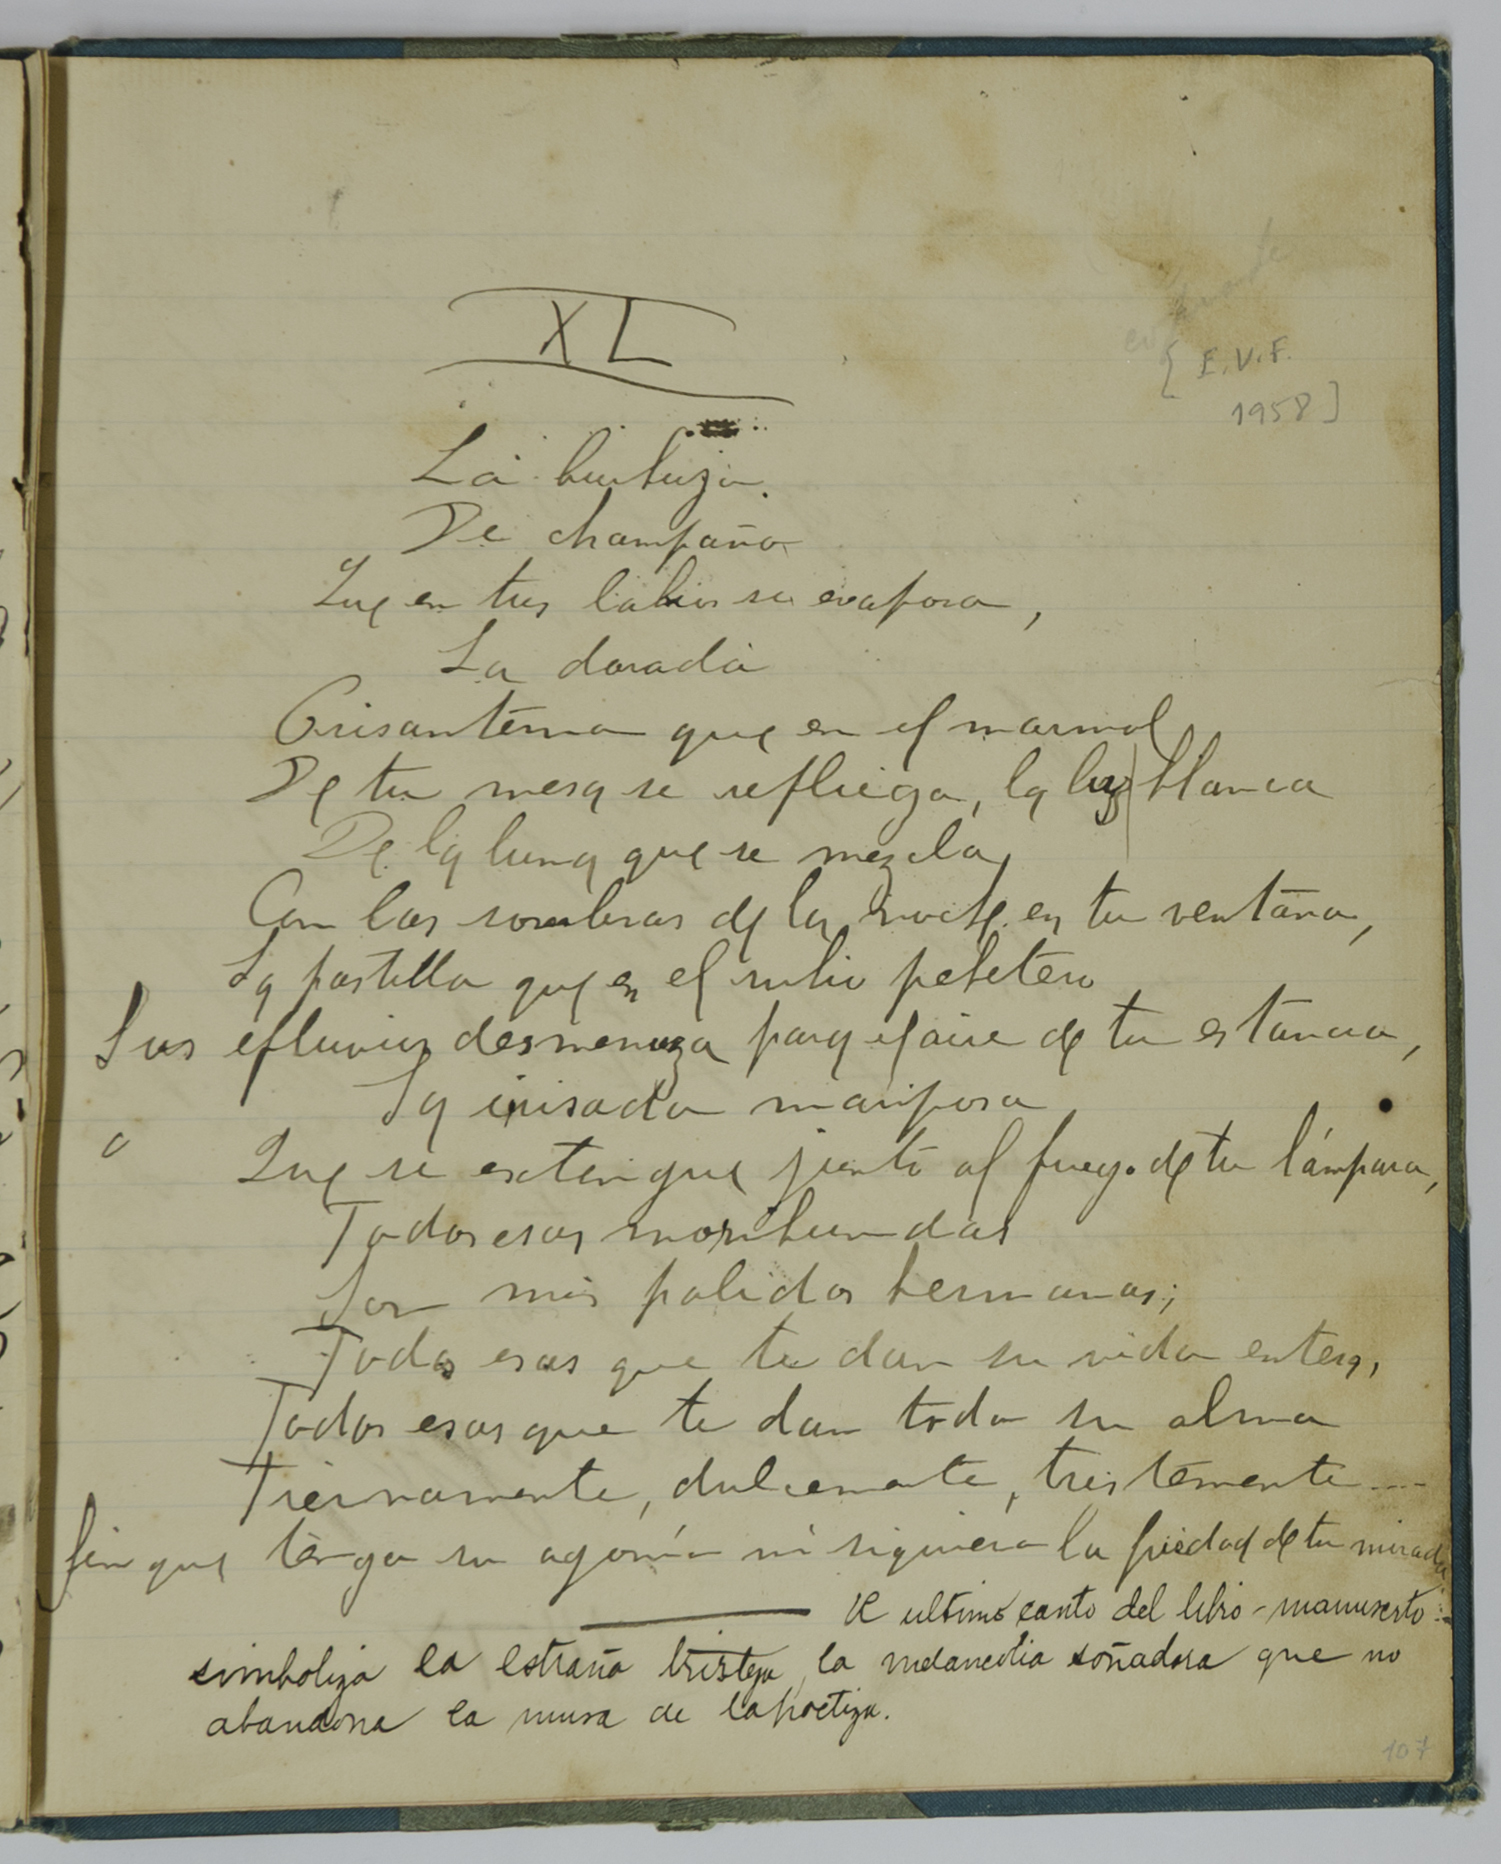 XL
[E.V.F.
1958]
La burbuja
De champaña
Que en tus labios se evapora,
La dorada
Crisantema que en el marmol
De tu mesa se repliega, la luz blanca
De la luna que se mezcla
Con las sombras de la noche en tu ventana,
La pastilla que en el rubio pebetero
Sus efluvios desmenuza para el aire de tu estancia,
La irisada mariposa
Que se extingue junto al fuego de tu lámpara,
Todas esas moribundas
Son mis palidas hermanas;
Todas esas que te dan su vida entera,
Todas esas que te dan toda su alma
Tiernamente, dulcemente, tristemente....
Sin que tenga su agonía ni siquiera la piedad de tu mirada
El ultimo canto del libro-manuscrto
simboliza la estraña tristeza, la melancolia soñadora que no
abandona la musa de la poetiza.
107